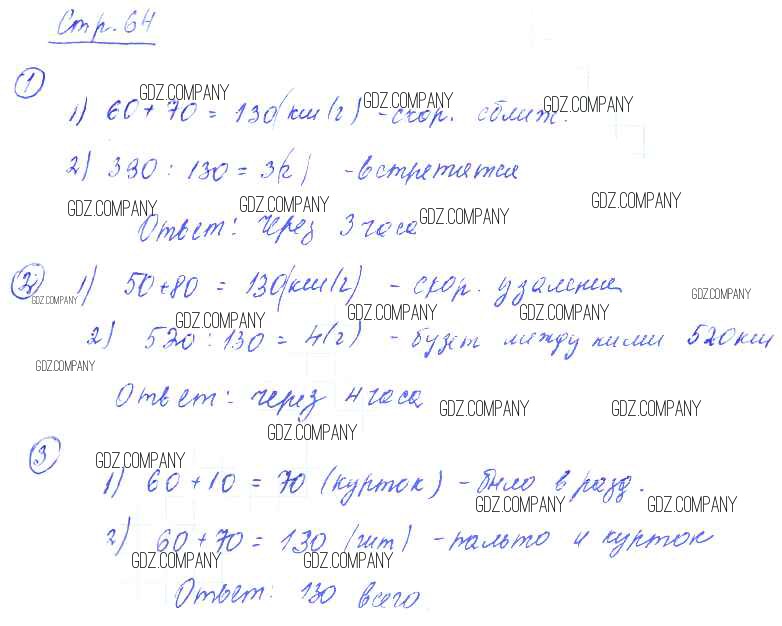 Стр. 64
1
GDZ.COMPANY GDZ.COMPANY GDZ.COMPANY
1) 60 + 70 = 130 (км/ч) - скор. сближ.
2) 390 : 130 = 3(ч) - встретятся
GDZ.COMPANY GDZ.COMPANY GDZ.COMPANY GDZ.COMPANY
Ответ: через 3 часа
2 1) 50+80 = 130 (км/ч) - скор. удаления
GDZ.COMPANY GDZ.COMPANY
GDZ.COMPANY GDZ.COMPANY GDZ.COMPANY
2) 520 : 130 = 4(ч) - будет между ними 520 км
GDZ.COMPANY
Ответ: через 4 часа
GDZ.COMPANY GDZ.COMPANY
GDZ.COMPANY
3
GDZ.COMPANY
1) 60 + 10 = 70 (курток) - было в разд.
GDZ.COMPANY GDZ.COMPANY
2) 60 + 70 = 130 (шт) - пальто и курток
GDZ.COMPANY GDZ.COMPANY
Ответ: 130 всего